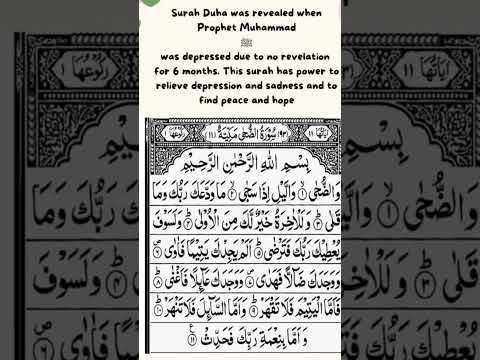 Surah Duha was revealed when
Prophet Muhammad
ﷺ
was depressed due to no revelation
for 6 months. This surah has power to
relieve depression and sadness and to
find peace and hope
اٰيَاتُهَا ١١ (٩٣) سُوْرَةُ الضُّحٰى مَكِّيَّةٌ (١١) رُكُوْعُهَا ١
بِسْمِ اللّٰهِ الرَّحْمٰنِ الرَّحِيْمِ
وَالضُّحٰى ۙ١ وَالَّيْلِ اِذَا سَجٰى ۙ٢ مَا وَدَّعَكَ رَبُّكَ وَمَا
قَلٰى ؕ٣ وَلَلْاٰخِرَةُ خَيْرٌ لَّكَ مِنَ الْاُوْلٰى ؕ٤ وَلَسَوْفَ
يُعْطِيْكَ رَبُّكَ فَتَرْضٰى ؕ٥ اَلَمْ يَجِدْكَ يَتِيْمًا فَاٰوٰى ۪٦
وَوَجَدَكَ ضَآلًّا فَهَدٰى ۪٧ وَوَجَدَكَ عَآئِلًا فَاَغْنٰى ؕ٨
فَاَمَّا الْيَتِيْمَ فَلَا تَقْهَرْ ؕ٩ وَاَمَّا السَّآئِلَ فَلَا تَنْهَرْ ؕ١٠
وَاَمَّا بِنِعْمَةِ رَبِّكَ فَحَدِّثْ ١١